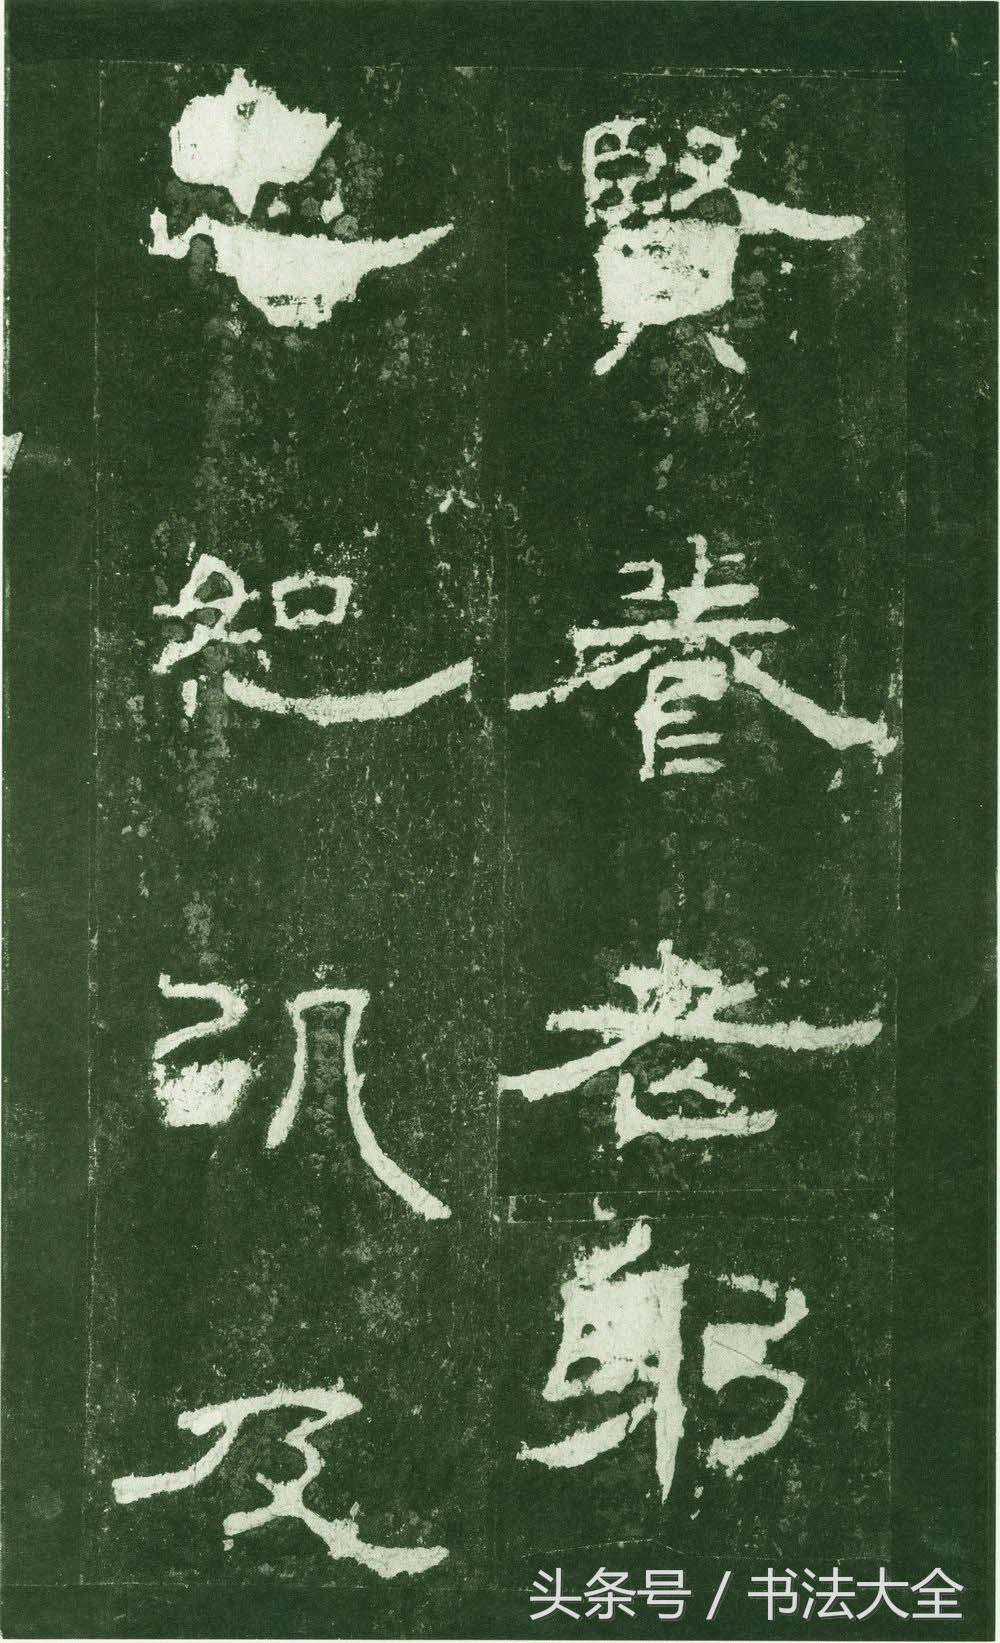 賢養老躬
忠恕以及
头条号 / 书法大全